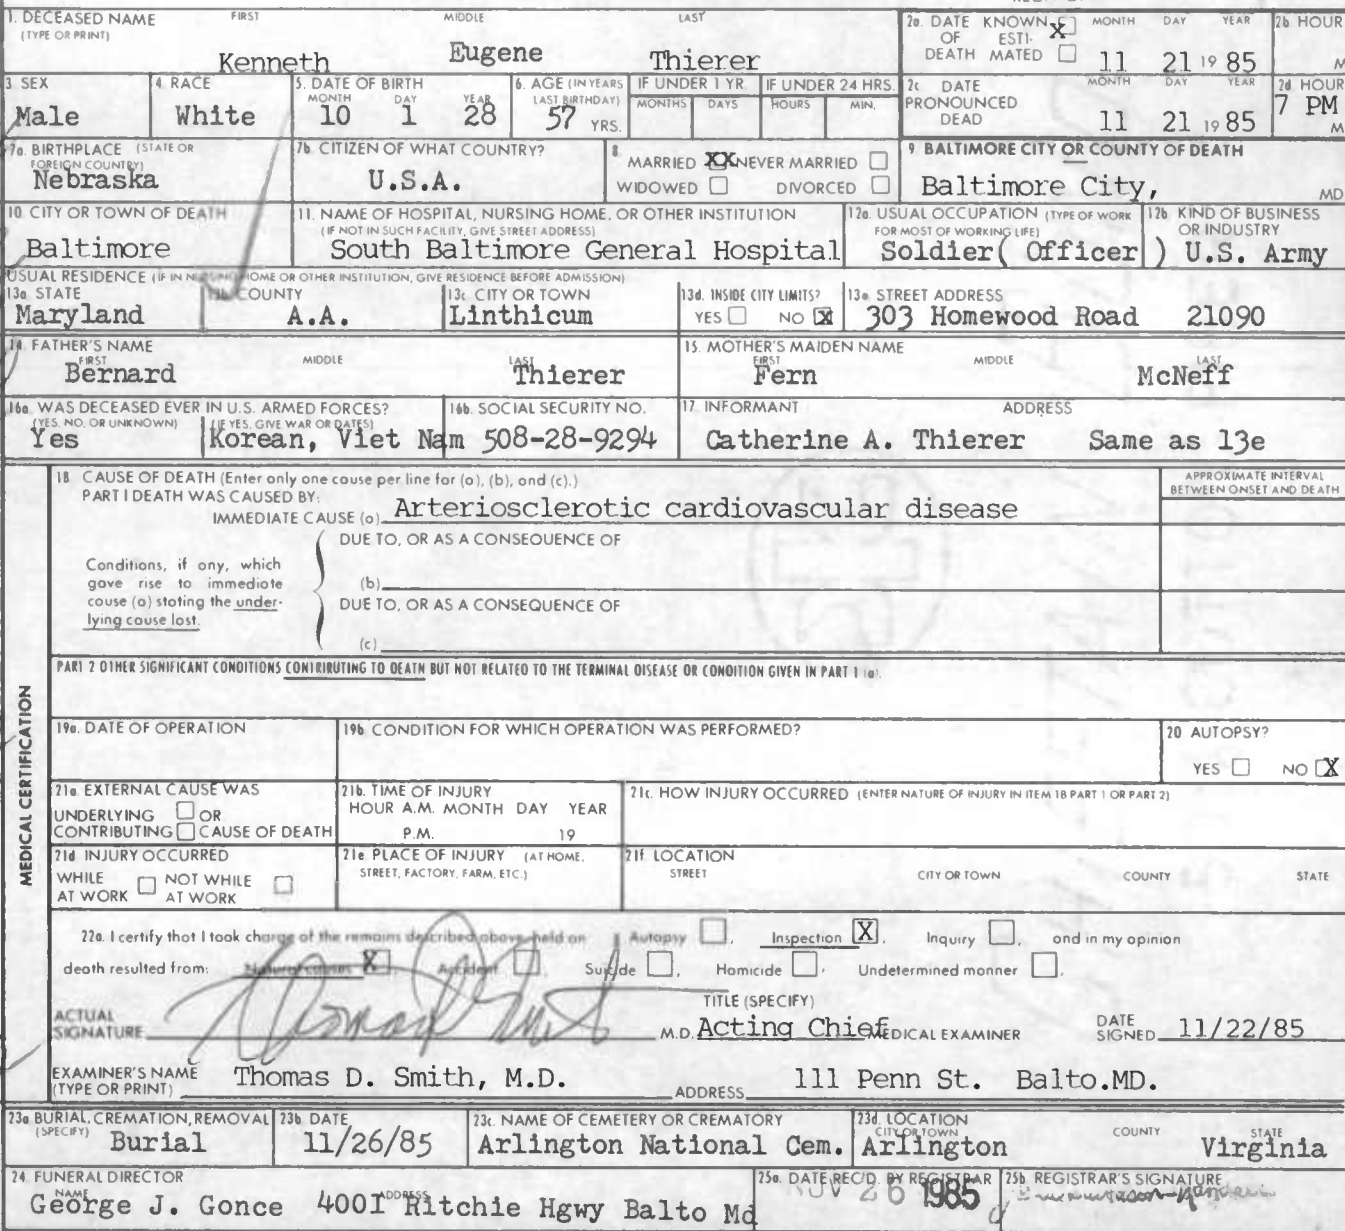 1. DECEASED NAME FIRST MIDDLE LAST
(TYPE OR PRINT)
Kenneth Eugene Thierer
2a. DATE KNOWN X MONTH DAY YEAR
OF ESTI-
DEATH MATED 11 21 19 85
2b HOUR
M
3. SEX
Male
4. RACE
White
5. DATE OF BIRTH
MONTH DAY YEAR
10 1 28
6. AGE (IN YEARS
LAST BIRTHDAY)
57 YRS.
IF UNDER 1 YR.
MONTHS DAYS
IF UNDER 24 HRS.
HOURS MIN.
2c DATE MONTH DAY YEAR
PRONOUNCED
DEAD 11 21 19 85
2d HOUR
7 PM
M
7a. BIRTHPLACE (STATE OR
FOREIGN COUNTRY)
Nebraska
7b. CITIZEN OF WHAT COUNTRY?
U.S.A.
8
MARRIED XX NEVER MARRIED
WIDOWED DIVORCED
9. BALTIMORE CITY OR COUNTY OF DEATH
Baltimore City, MD
10. CITY OR TOWN OF DEATH
Baltimore
11. NAME OF HOSPITAL, NURSING HOME, OR OTHER INSTITUTION
(IF NOT IN SUCH FACILITY, GIVE STREET ADDRESS)
South Baltimore General Hospital
12a. USUAL OCCUPATION (TYPE OF WORK
FOR MOST OF WORKING LIFE)
Soldier( Officer )
12b. KIND OF BUSINESS
OR INDUSTRY
U.S. Army
USUAL RESIDENCE (IF IN NURSING HOME OR OTHER INSTITUTION, GIVE RESIDENCE BEFORE ADMISSION)
13a. STATE
Maryland
13b. COUNTY
A.A.
13c. CITY OR TOWN
Linthicum
13d. INSIDE CITY LIMITS?
YES NO X
13e. STREET ADDRESS
303 Homewood Road 21090
14. FATHER'S NAME
FIRST MIDDLE LAST
Bernard Thierer
15. MOTHER'S MAIDEN NAME
FIRST MIDDLE LAST
Fern McNeff
16a. WAS DECEASED EVER IN U.S. ARMED FORCES?
(YES, NO, OR UNKNOWN) (IF YES, GIVE WAR OR DATES)
Yes Korean, Viet Nam
16b. SOCIAL SECURITY NO.
508-28-9294
17. INFORMANT ADDRESS
Catherine A. Thierer Same as 13e
MEDICAL CERTIFICATION
18. CAUSE OF DEATH (Enter only one cause per line for (a), (b), and (c).)
PART I DEATH WAS CAUSED BY:
IMMEDIATE CAUSE (a) Arteriosclerotic cardiovascular disease
APPROXIMATE INTERVAL
BETWEEN ONSET AND DEATH
DUE TO, OR AS A CONSEQUENCE OF
Conditions, if any, which
gave rise to immediate
cause (a) stating the under-
lying cause last.
(b)
DUE TO, OR AS A CONSEQUENCE OF
(c)
PART 2 OTHER SIGNIFICANT CONDITIONS CONTRIBUTING TO DEATH BUT NOT RELATED TO THE TERMINAL DISEASE OR CONDITION GIVEN IN PART 1 (a).
19a. DATE OF OPERATION
19b. CONDITION FOR WHICH OPERATION WAS PERFORMED?
20 AUTOPSY?
YES NO X
21a. EXTERNAL CAUSE WAS
UNDERLYING OR
CONTRIBUTING CAUSE OF DEATH
21b. TIME OF INJURY
HOUR A.M. MONTH DAY YEAR
P.M. 19
21c. HOW INJURY OCCURRED (ENTER NATURE OF INJURY IN ITEM 18 PART 1 OR PART 2)
21d INJURY OCCURRED
WHILE NOT WHILE
AT WORK AT WORK
21e PLACE OF INJURY (AT HOME,
STREET, FACTORY, FARM, ETC.)
21f. LOCATION
STREET CITY OR TOWN COUNTY STATE
22a. I certify that I took charge of the remains described above, held an Autopsy , Inspection X , Inquiry , and in my opinion
death resulted from: Natural causes X Accident , Suicide , Homicide , Undetermined manner ,
TITLE (SPECIFY)
ACTUAL
SIGNATURE M.D. Acting Chief MEDICAL EXAMINER
DATE
SIGNED 11/22/85
EXAMINER'S NAME
(TYPE OR PRINT) Thomas D. Smith, M.D. ADDRESS 111 Penn St. Balto.MD.
23a BURIAL, CREMATION, REMOVAL
(SPECIFY) Burial
23b. DATE
11/26/85
23c. NAME OF CEMETERY OR CREMATORY
Arlington National Cem.
23d. LOCATION
CITY OR TOWN COUNTY STATE
Arlington Virginia
24 FUNERAL DIRECTOR
NAME ADDRESS
George J. Gonce 4001 Ritchie Hgwy Balto Md
25a. DATE REC'D. BY REGISTRAR
NOV 26 1985
25b. REGISTRAR'S SIGNATURE